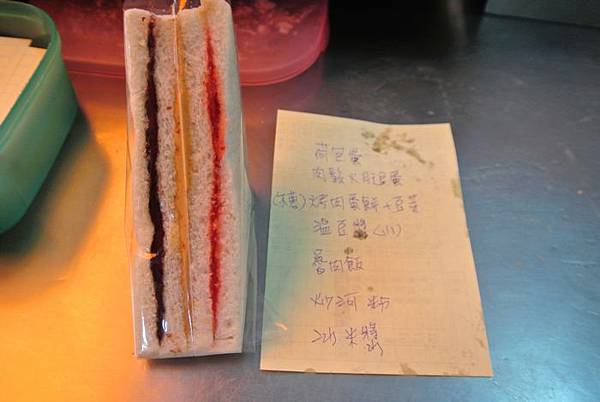 荷包蛋
肉鬆火月退蛋
(微)烤肉蛋餅+豆芽
溫豆漿(小)
魯肉飯
炒河粉
冰米漿